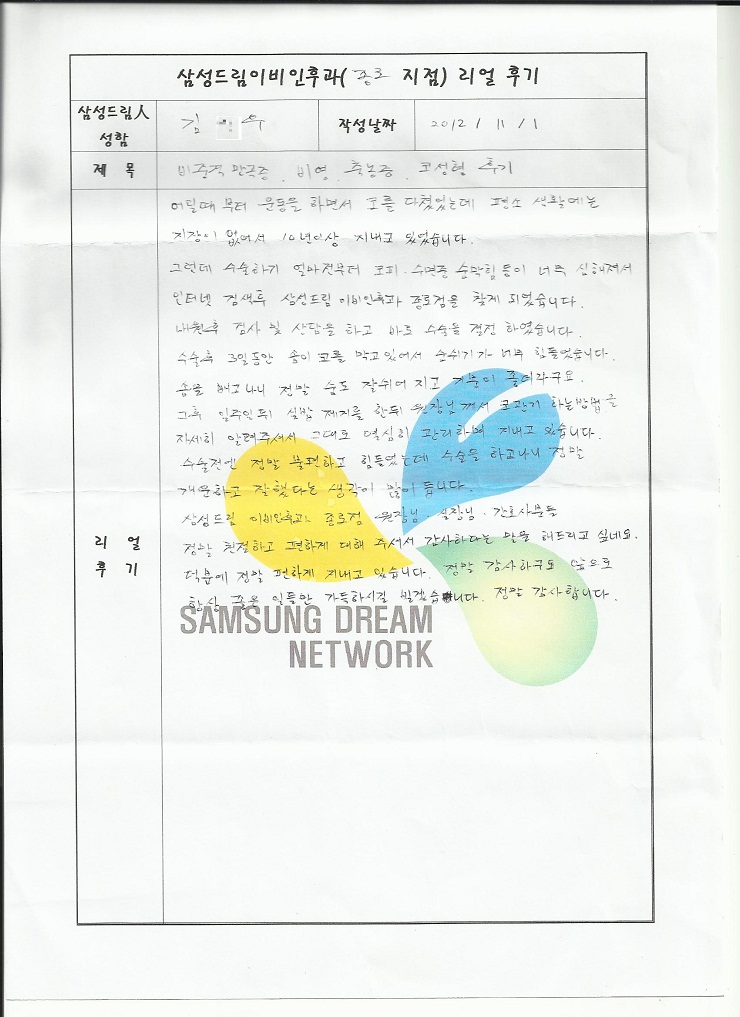 삼성드림이비인후과( 종로 지점) 리얼 후기
삼성드림人 성함
김 우
작성날짜
2012 / 11 / 1
제 목
비중격 만곡증 . 비염 . 축농증 . 코성형 후기
리 얼 후 기
어릴때 부터 운동을 하면서 코를 다쳤었는데 평소 생활에는
지장이 없어서 10년이상 지내고 있었습니다.
그런데 수술하기 얼마전부터 코피 . 수면중 숨막힘 등이 너무 심해져서
인터넷 검색후 삼성드림 이비인후과 종로점을 찾게 되었습니다.
내원후 검사 및 상담을 하고 바로 수술을 결정 하였습니다.
수술후 3일동안 솜이 코를 막고 있어서 숨쉬기가 너무 힘들었습니다.
솜을 빼고나니 정말 숨도 잘쉬어 지고 기분이 좋더라구요.
그후 일주일뒤 실밥 제거를 한뒤 원장님께서 코관리 하는방법을
자세히 알려주셔서 그대로 열심히 관리하며 지내고 있습니다.
수술전엔 정말 불편하고 힘들었는데 수술을 하고나니 정말
개운하고 잘했다는 생각이 많이 듭니다.
삼성드림 이비인후과 종로점 원장님 . 실장님 . 간호사분들
정말 친절하고 편하게 대해 주셔서 감사하다는 말을 해드리고 싶네요.
덕분에 정말 편하게 지내고 있습니다. 정말 감사하구요 앞으로
항상 좋은 일들만 가득하시길 빌겠습니다. 정말 감사합니다.
SAMSUNG DREAM
NETWORK